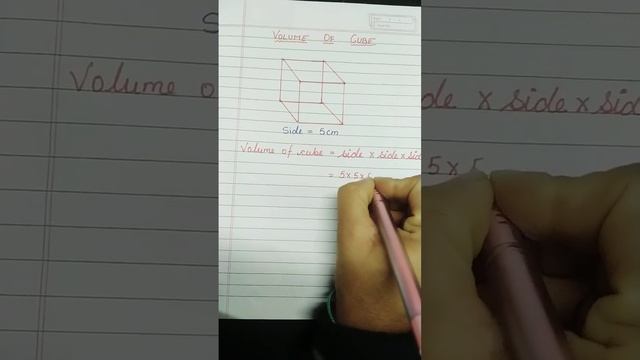 VOLUME OF CUBE
Side = 5cm
Volume of cube = side x side x sid
= 5x5x